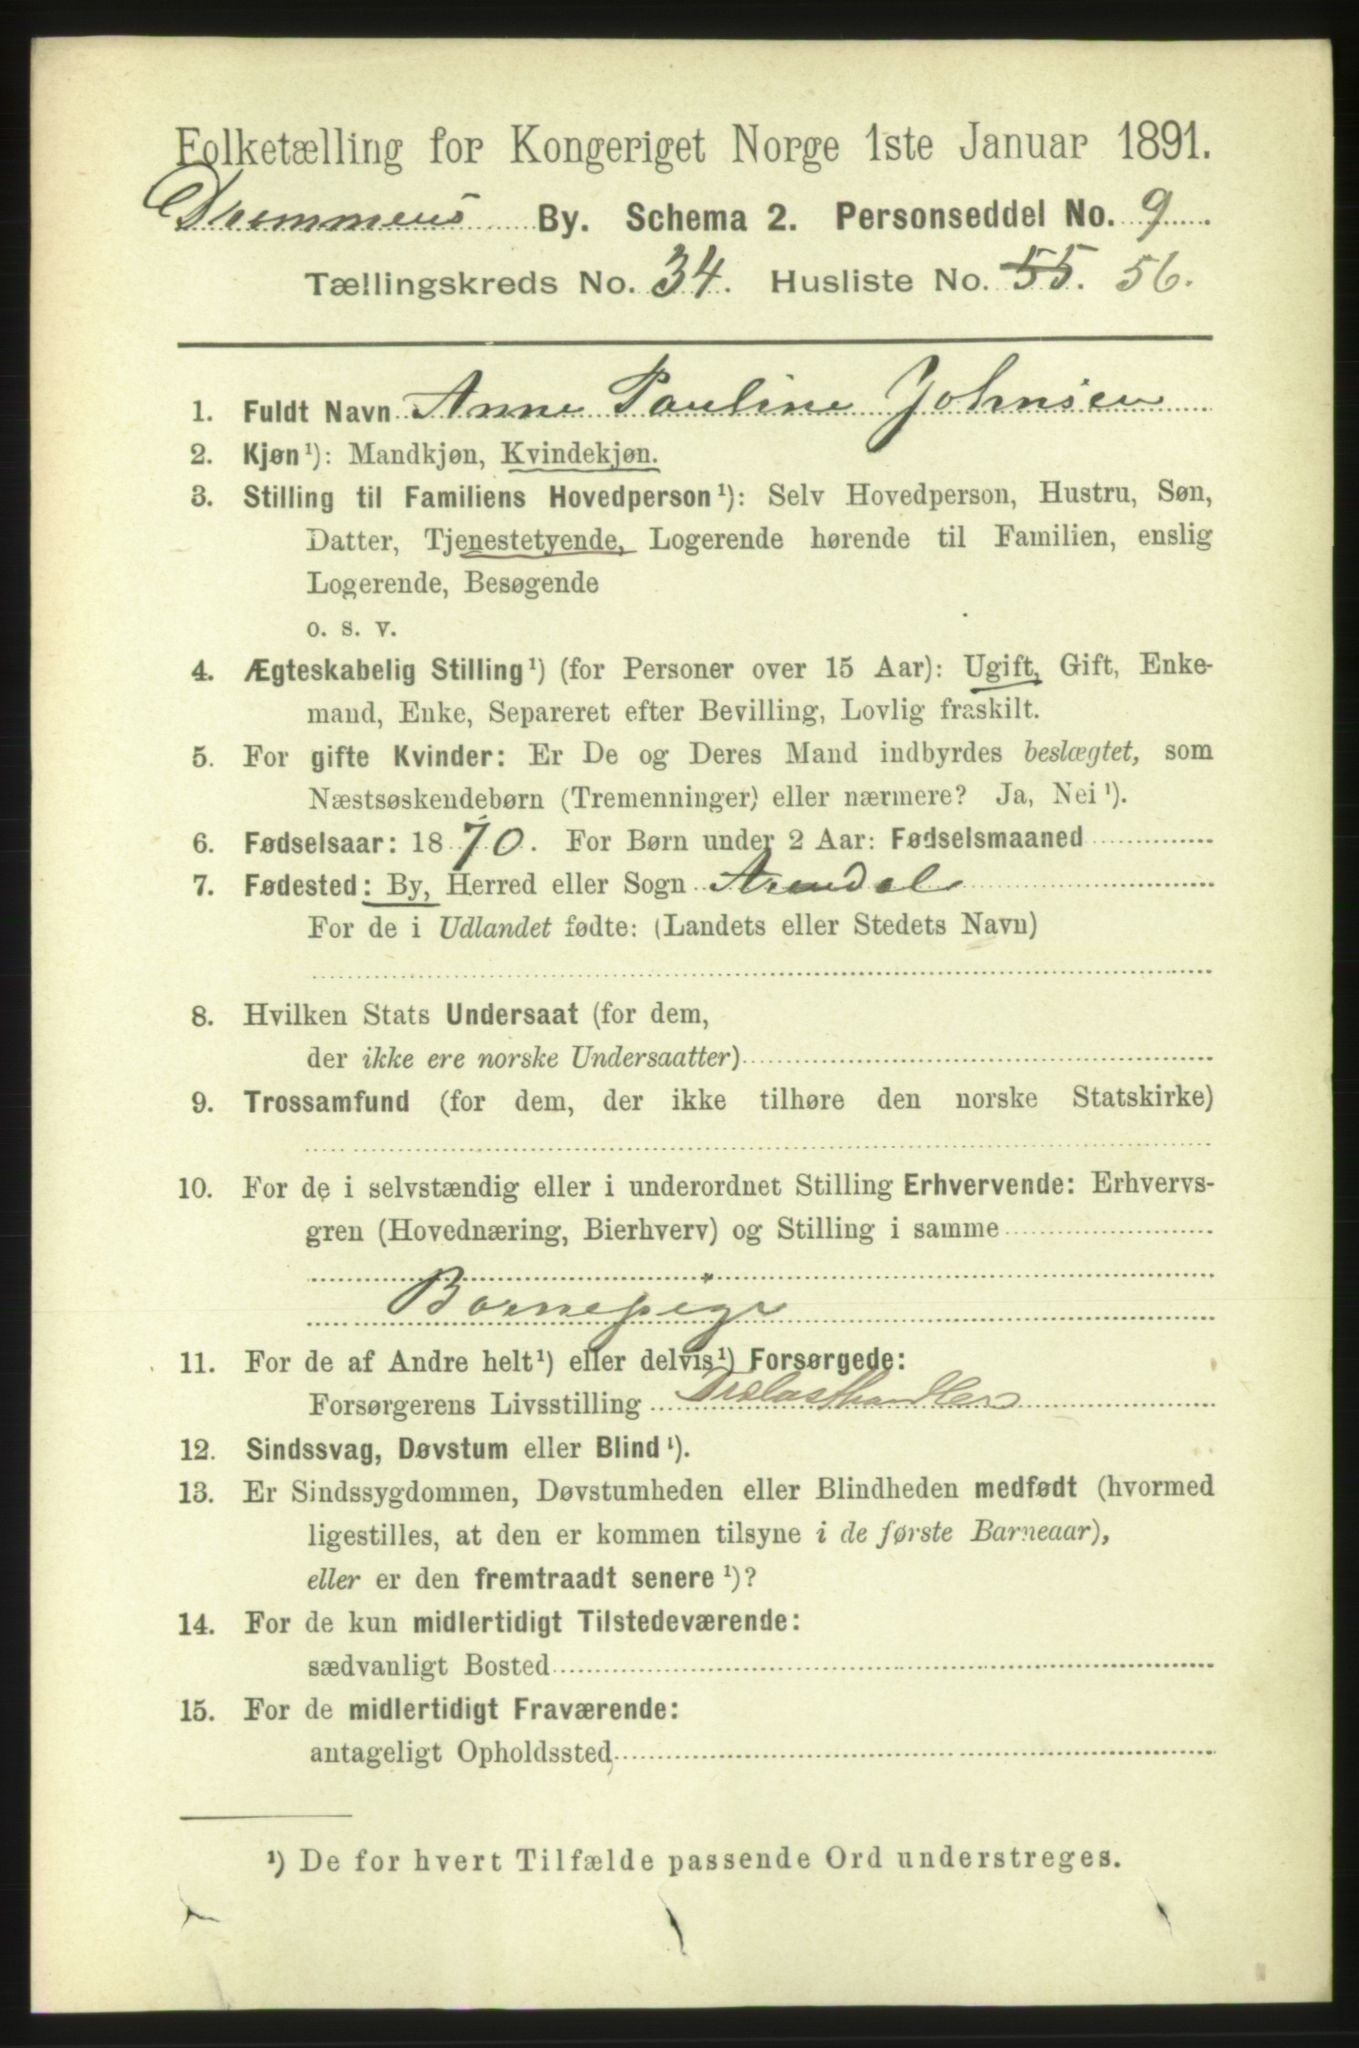 Folketælling for Kongeriget Norge 1ste Januar 1891.
Drammens By. Schema 2. Personseddel No. 9
Tællingskreds No. 34. Husliste No. 55. 56.
1. Fuldt Navn Anne Pauline Johnsen
2. Kjøn¹): Mandkjøn, Kvindekjøn.
3. Stilling til Familiens Hovedperson¹): Selv Hovedperson, Hustru, Søn,
Datter, Tjenestetyende, Logerende hørende til Familien, enslig
Logerende, Besøgende
o. s. v.
4. Ægteskabelig Stilling¹) (for Personer over 15 Aar): Ugift, Gift, Enke-
mand, Enke, Separeret efter Bevilling, Lovlig fraskilt.
5. For gifte Kvinder: Er De og Deres Mand indbyrdes beslægtet, som
Næstsøskendebørn (Tremenninger) eller nærmere? Ja, Nei¹).
6. Fødselsaar: 1870. For Børn under 2 Aar: Fødselsmaaned
7. Fødested: By, Herred eller Sogn Arendal
For de i Udlandet fødte: (Landets eller Stedets Navn)
8. Hvilken Stats Undersaat (for dem,
der ikke ere norske Undersaatter)
9. Trossamfund (for dem, der ikke tilhøre den norske Statskirke)
10. For de i selvstændig eller i underordnet Stilling Erhvervende: Erhvervs-
gren (Hovednæring, Bierhverv) og Stilling i samme
Barnepige
11. For de af Andre helt¹) eller delvis¹) Forsørgede:
Forsørgerens Livsstilling Trælasthandler
12. Sindssvag, Døvstum eller Blind¹).
13. Er Sindssygdommen, Døvstumheden eller Blindheden medfødt (hvormed
ligestilles, at den er kommen tilsyne i de første Barneaar),
eller er den fremtraadt senere¹)?
14. For de kun midlertidigt Tilstedeværende:
sædvanligt Bosted
15. For de midlertidigt Fraværende:
antageligt Opholdssted
¹) De for hvert Tilfælde passende Ord understreges.